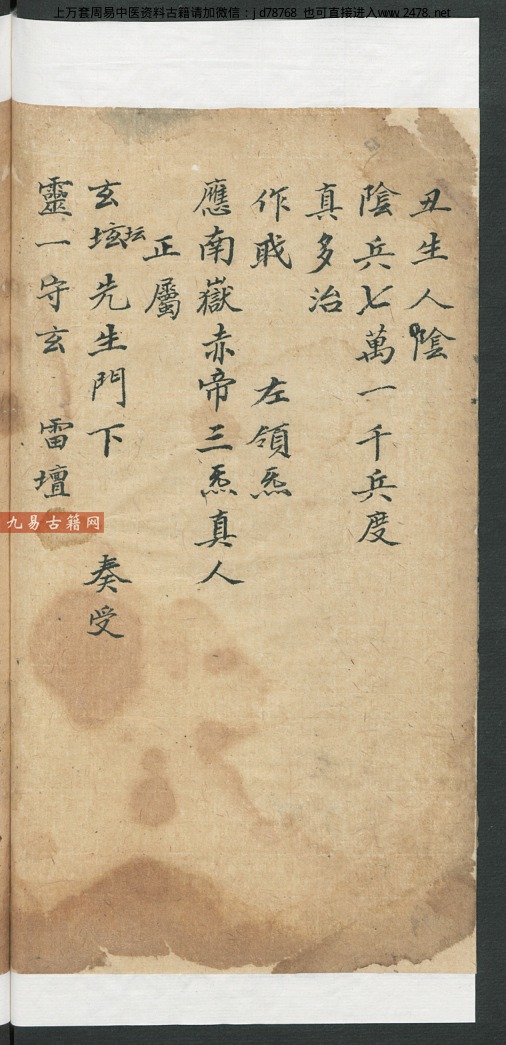 上万套周易中医资料古籍请加微信：jd78768 也可直接进入www.2478.net
丑生人陰
陰兵七萬一千兵度
真多治
作戢 左領炁
應南嶽赤帝三炁真人
正屬
玄坛坛先生門下 奏受
靈一守玄 雷壇
九易古籍网